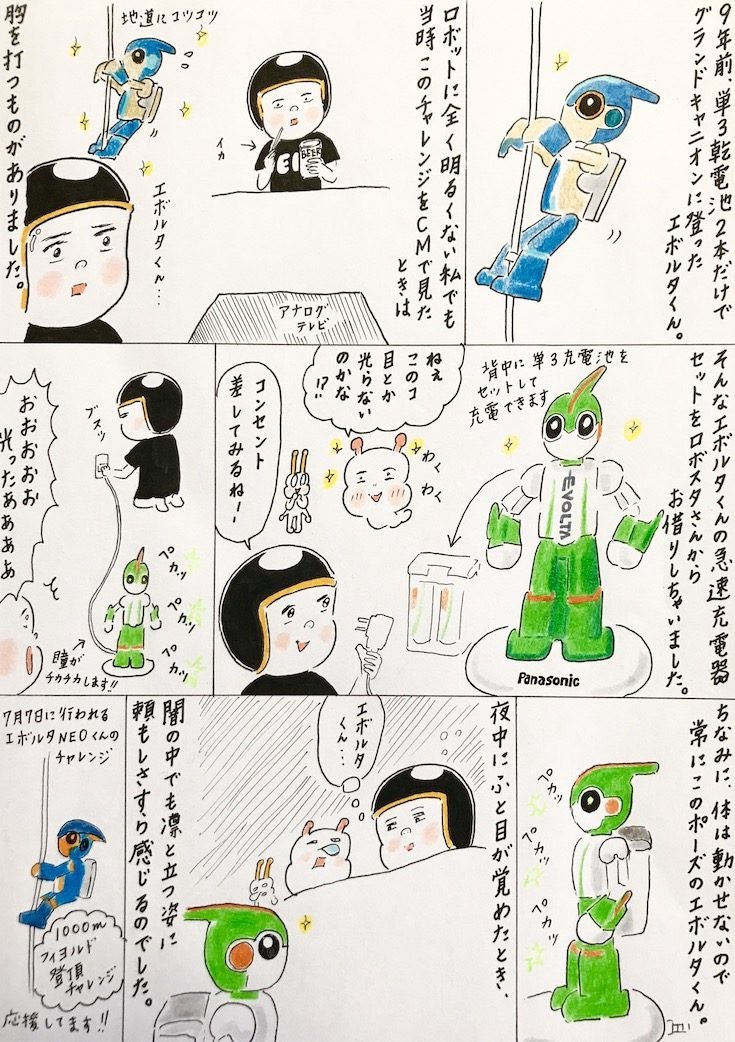 9年前、単3乾電池2本だけで
グランドキャニオンに登った
エボルタくん。
ロボットに全く明るくない私でも
当時このチャレンジをCMで見た
ときは
イカ
BEER
アナログ
テレビ
地道にコツコツ
エボルタくん…
胸を打つものがありました。
そんなエボルタくんの急速充電器
セットをロボスタさんから
お借りしちゃいました。
背中に単3充電池を
セットして
充電できます
EVOLTA
Panasonic
ねぇ
このコ
目とか
光らない
のかな
!?
わくわく
コンセント
差してみるねー!
ブスッ
ペカッ
ペカッ
ペカッ
瞳が
チカチカします!!
おおおおお
光ったぁぁぁぁ
ちなみに、体は動かせないので
常にこのポーズのエボルタくん。
ペカッ
ペカッ
ペカッ
夜中にふと目が覚めたとき、
エボルタ
くん…
闇の中でも凛と立つ姿に
頼もしさすら感じるのでした。
7月7日に行われる
エボルタNEOくんの
チャレンジ
1000m
フィヨルド
登頂
チャレンジ
応援してます!!